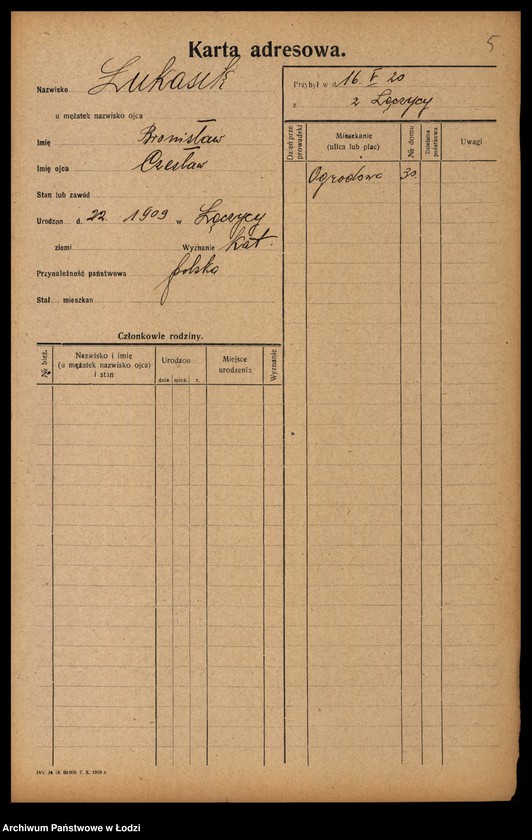 5
Karta adresowa.
Nazwisko Łukasik
u mężatek nazwisko ojca
Imię Bronisław
Imię ojca Czesław
Stan lub zawód
Urodzon d. 22. 1909 w Łęczycy
ziemi Wyznanie kat.
Przynależność państwowa polska
Stał. mieszkan
Przybył w d. 16. V 20
z z Łęczycy
Dzień przeprowadzki
Mieszkanie
(ulica lub plac)
№ domu
Dzielnica podatkowa.
Uwagi
Ogrodowa 30
Członkowie rodziny.
№ bież.
Nazwisko i imię
(u mężatek nazwisko ojca)
i stan
Urodzon
dnia mies. r.
Miejsce
urodzenia
Wyznanie
IVc № 18. 60.000 7. X. 1919 r.
Archiwum Państwowe w Łodzi